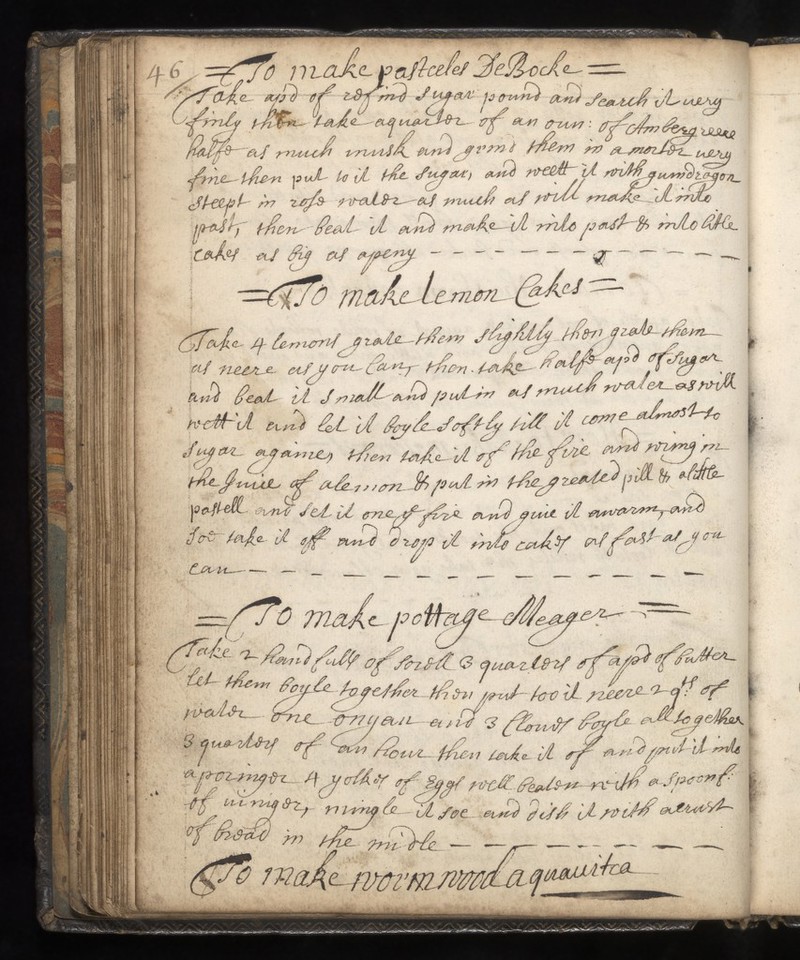 46
= To make pastceles De Bocke =
Take apd of refind sugar pound and search it very
finly then take aquarter of an oun: of Ambergreece
halfe as much musk and grind them in a morter very
fine then put to it the sugar, and wett it with gumdragon
steept in rose water as much as will make it into
past, then beat it and make it into past & into litle
cakes as big as apeny - - - - - - - - - - -
= To make lemon Cakes =
Take 4 lemons grate them slightly then grate them
as neere as you Can, then take halfe apd of sugar
and beat it small and put in as much water as will
wett it and let it boyle softly till it come almost to
sugar againe, then take it of the fire and wring in
the Juice of alemon & put in the greated pill & alittle
pastell and set it one ye fire and give it awarm, and
soe take it off and drop it into cakes as fast as you
can - - - - - - - - - - - - - -
= To make pottage Meager =
Take 2 handfulls of sorell 3 quarters of apd of butter
let them boyle together then put too it neere 2 qts: of
water one onyan and 3 Cloves boyle all together
3 quarters of an hour then take it of and put it into
aporinger 4 yolkes of Eggs well beaten with a spoonf:
of viniger, mingle it soe and dish it with acrust
of bread in the midle - - - - - - - -
To make wormwood aquavitea